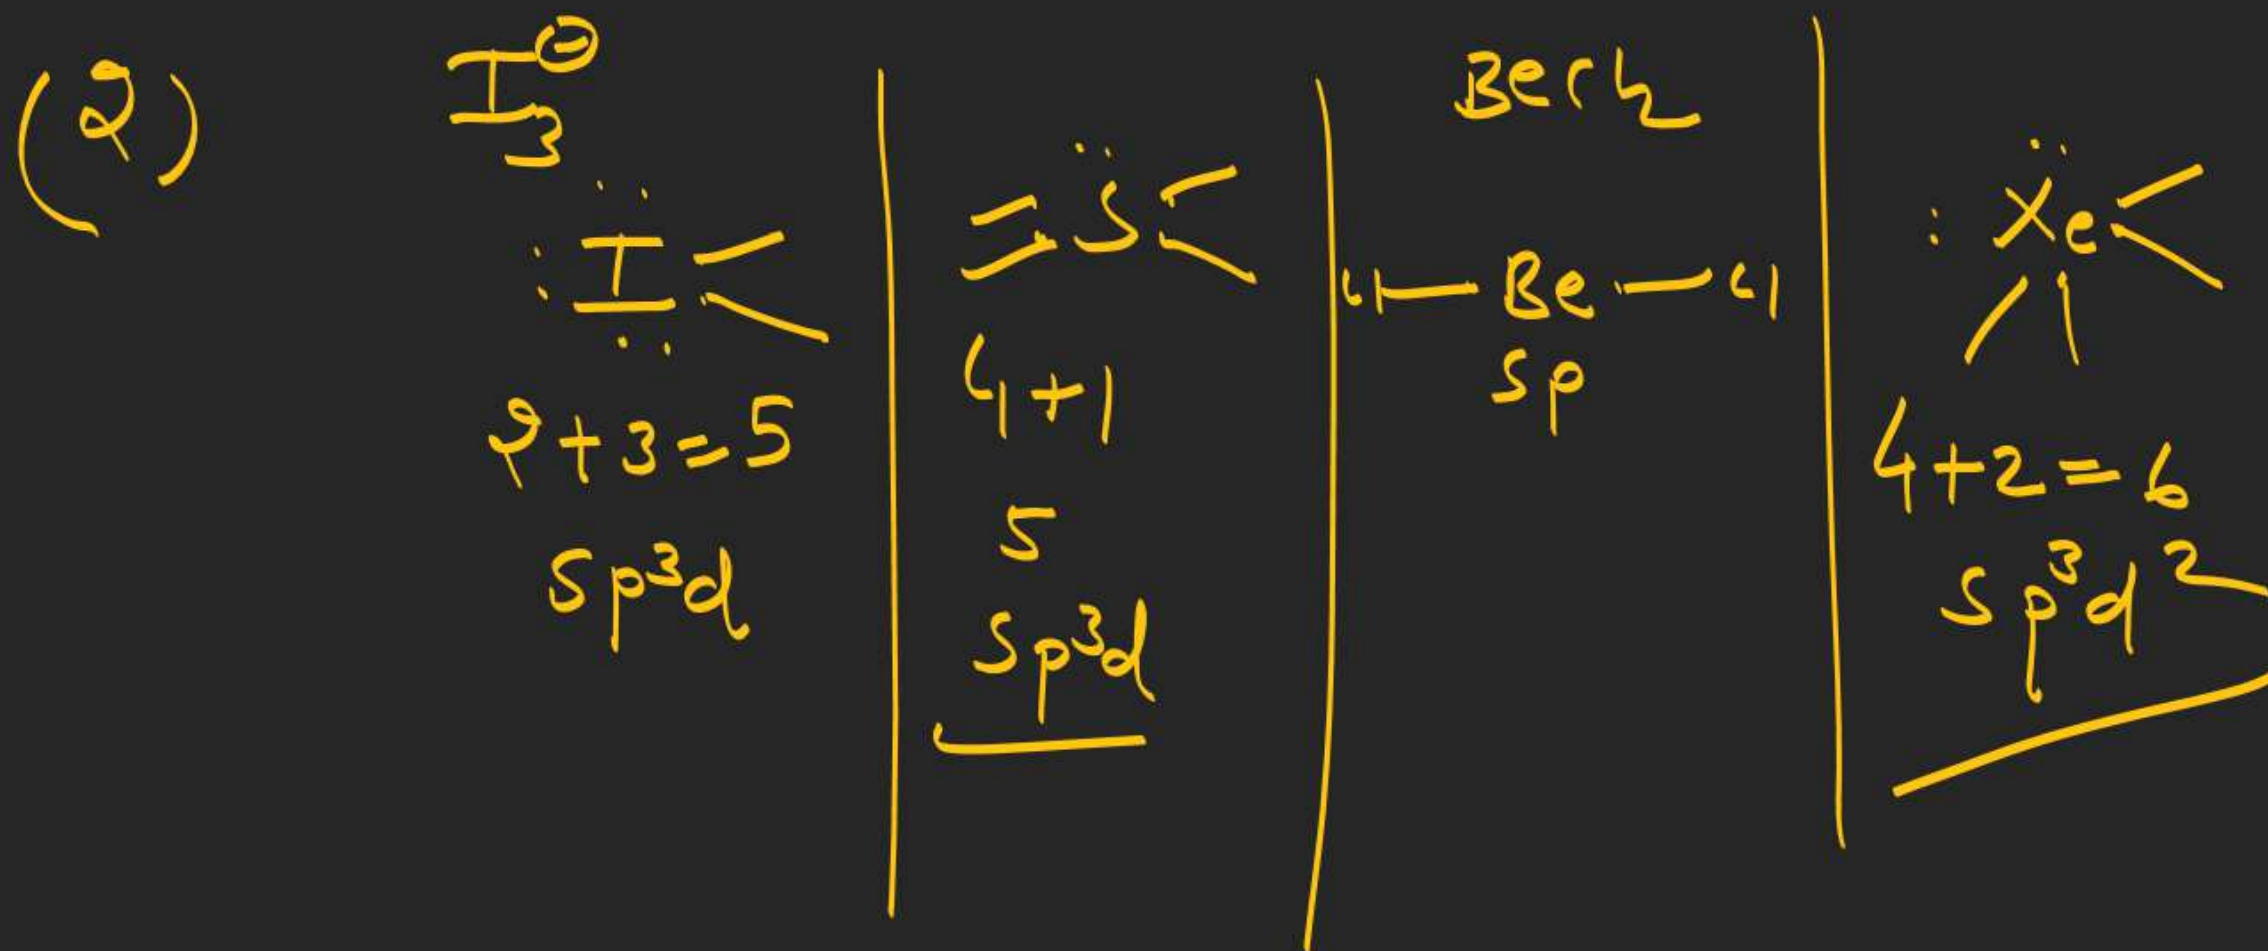 (2)
I₃⊖
:I
2+3=5
sp³d
S
4+1
5
sp³d
BeCl₂
Cl—Be—Cl
sp
:Xe
4+2=6
sp³d²